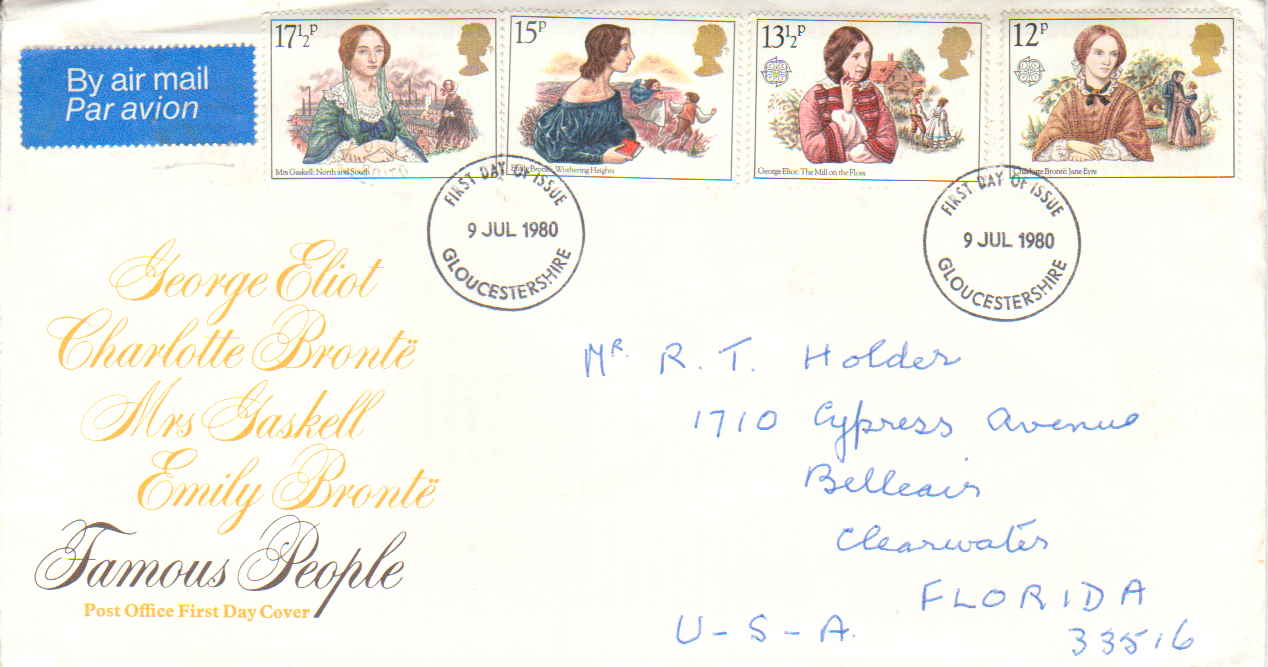 By air mail
Par avion
17½P
Mrs Gaskell: North and South
15P
Emily Brontë: Wuthering Heights
13½P
George Eliot: The Mill on the Floss
12P
Charlotte Brontë: Jane Eyre
FIRST DAY OF ISSUE
9 JUL 1980
GLOUCESTERSHIRE
FIRST DAY OF ISSUE
9 JUL 1980
GLOUCESTERSHIRE
George Eliot
Charlotte Brontë
Mrs Gaskell
Emily Brontë
Famous People
Post Office First Day Cover
Mr. R. T. Holder
1710 Cypress Avenue
Belleair
Clearwater
FLORIDA
U-S-A.
33516